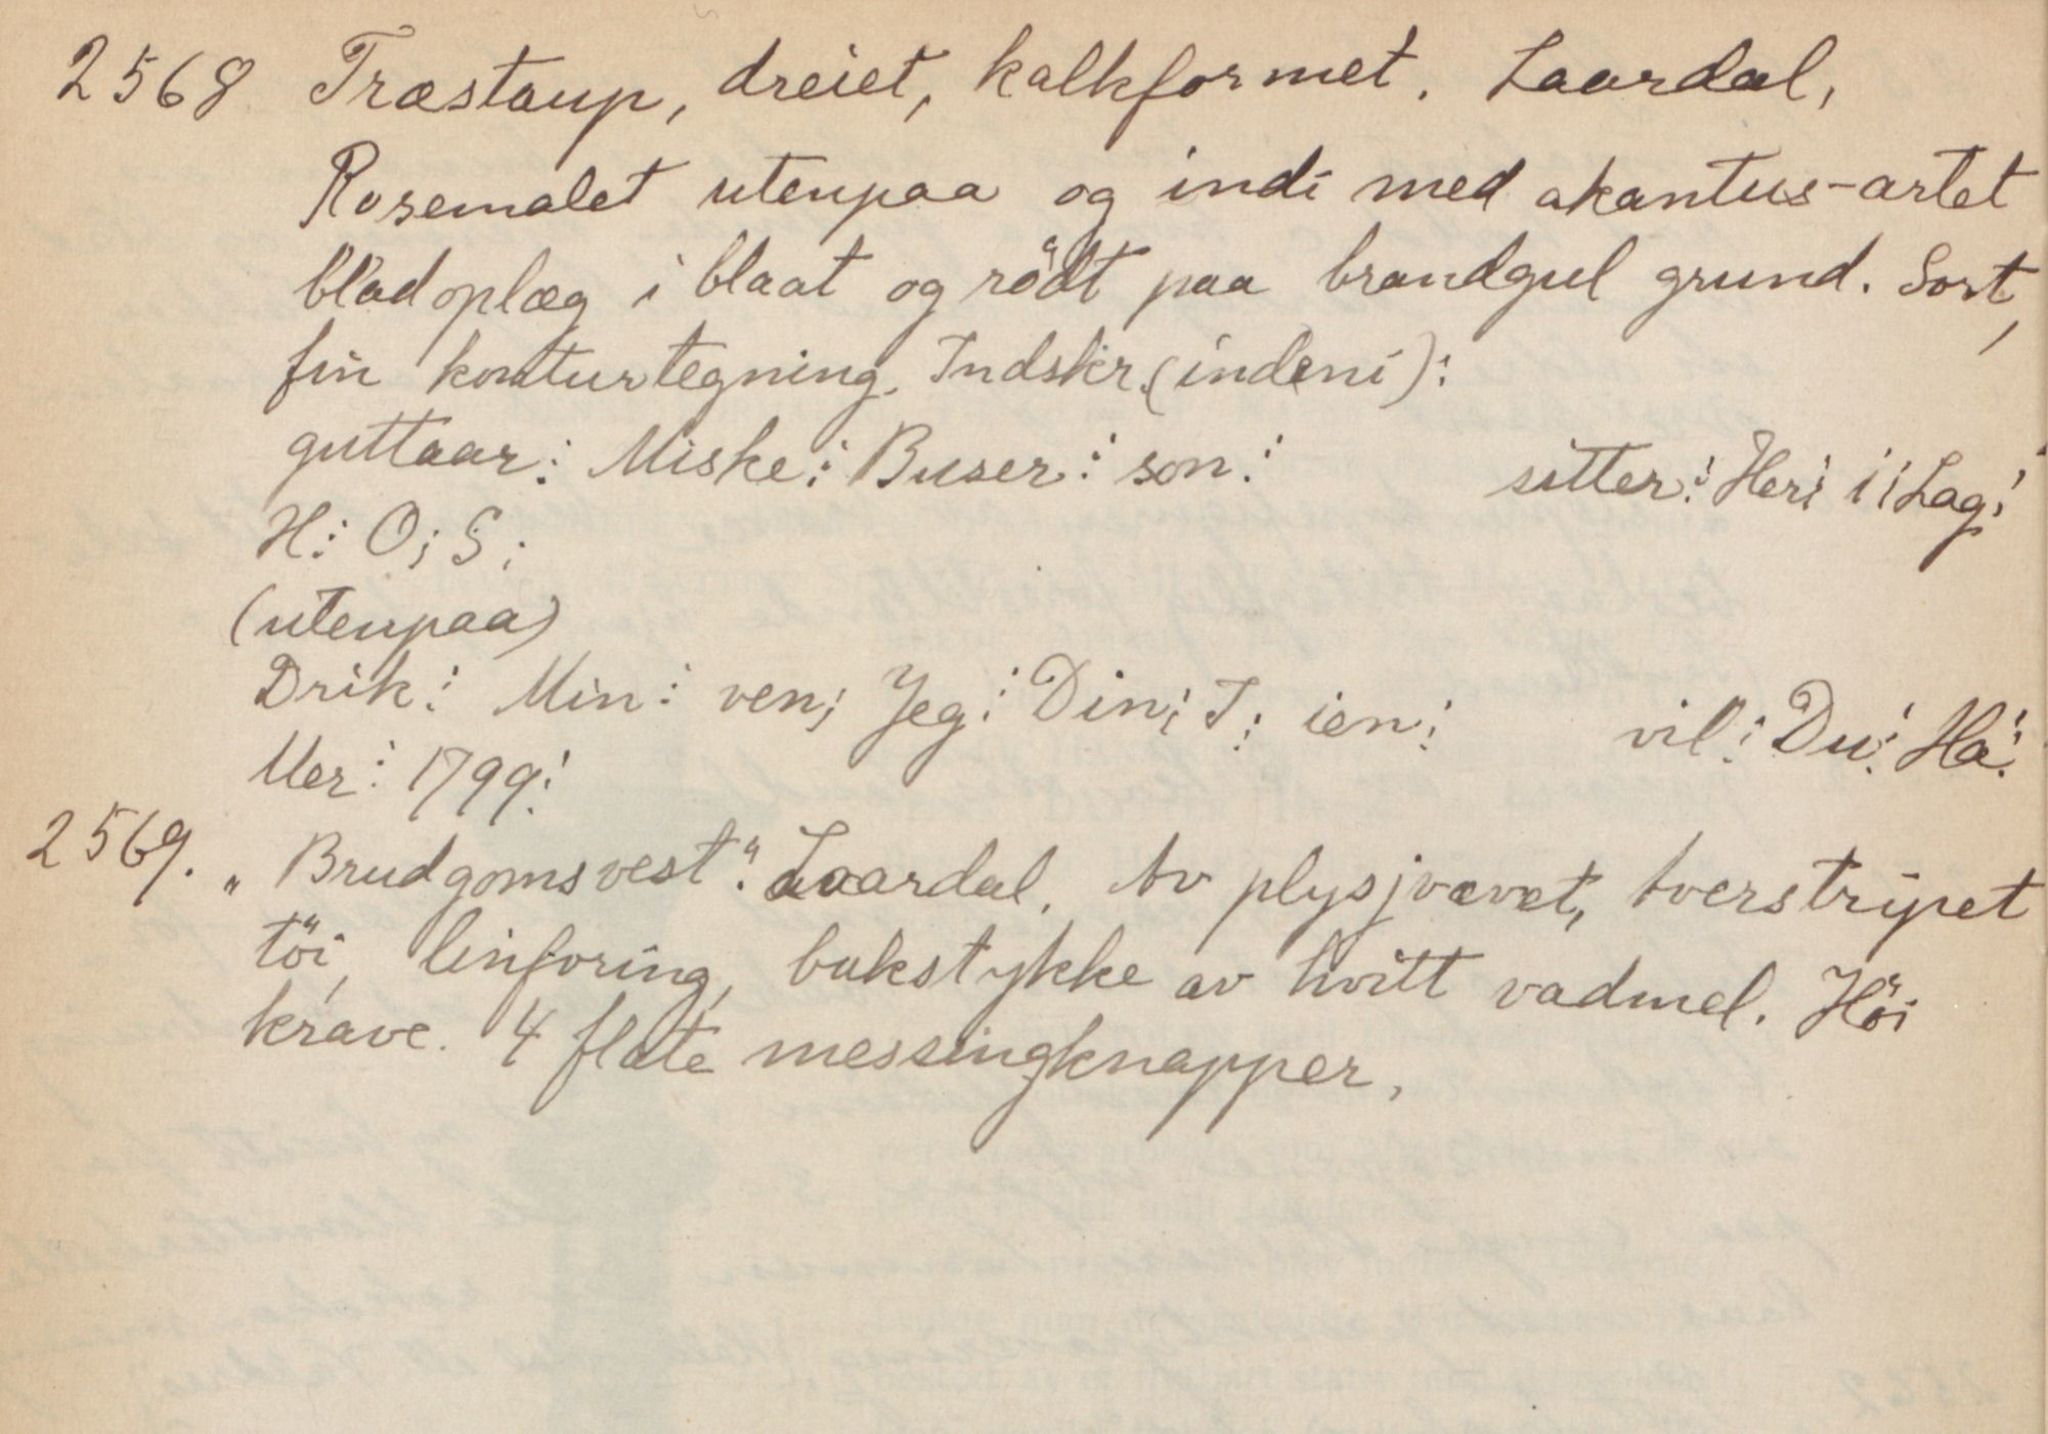 2568 Træstaup, dreiet, kalkformet. Laardal,
Rosemalet utenpaa og indi med akantus-artet
bladoplæg i blaat og rödt paa brandgul grund. Sort,
fin konturtegning. Indskr. (indeni):
guttaar: Miske: Buser: son: sitter: Her: i: Lag:
H: O: S:
(utenpaa)
Drik: Min: ven: Jeg: Din: T: ien: vil: Du: Ha:
Mer: 1799:
2569. „Brudgomsvest". Laardal. Av plysjvævet, tverstripet
töi, linforing, bakstykke av hvitt vadmel. Höi
krave. 4 flate messingknapper.